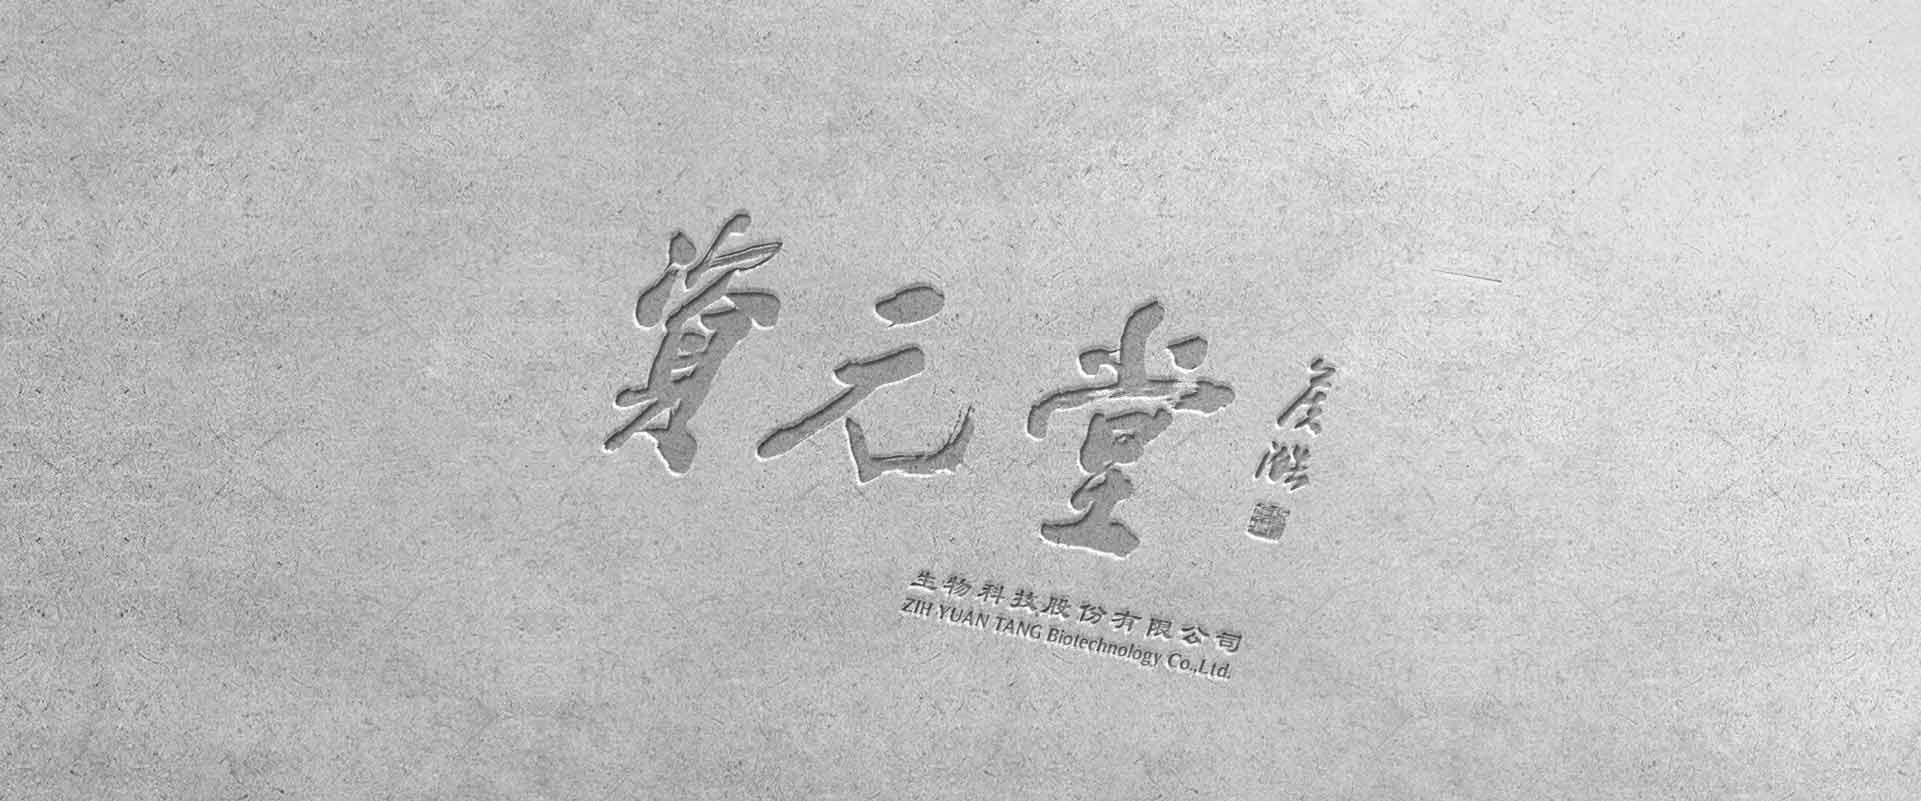 資元堂
生物科技股份有限公司
ZIH YUAN TANG Biotechnology Co.,Ltd.